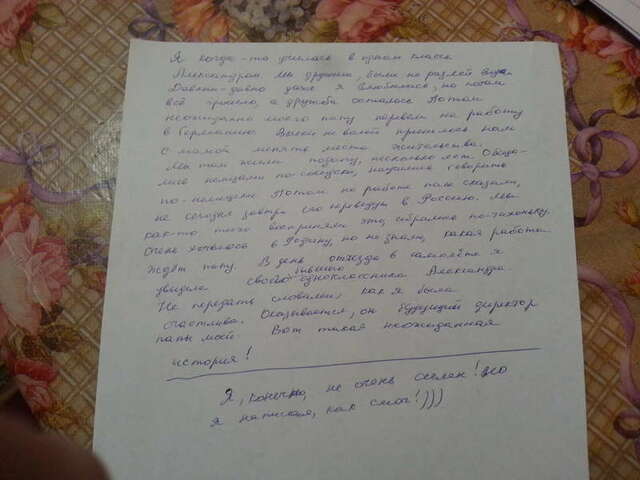 Я когда-то училась в одном классе
Александром. Мы дружили, были не разлей вода
Давным-давно даже я влюбилась, но потом
всё прошло, а дружба осталась Потом
неожиданно моего папу перевели на работу
в Германию. Волей не волей пришлось нам
с мамой менять место жительства.
Мы там жили подолгу, несколько лет. Обща-
лись немцами по-соседски, научились говорить
по-немецки. Потом на работе папе сказали,
не сегодня завтра его переведут в Россию. Мы
как-то тихо восприняли это, собрались по-тихоньку.
Очень хотелось в Родину, но не знали, какая работа
ждёт папу. В день отъезда в самолёте я
увидела своего бывшего одноклассника Александра.
Не передать словами, как я была
счастлива. Оказывается, он будущий директор
папы моей. Вот такая неожиданная
история!
Я, конечно, не очень осилен! Но
я написала, как смог!)))